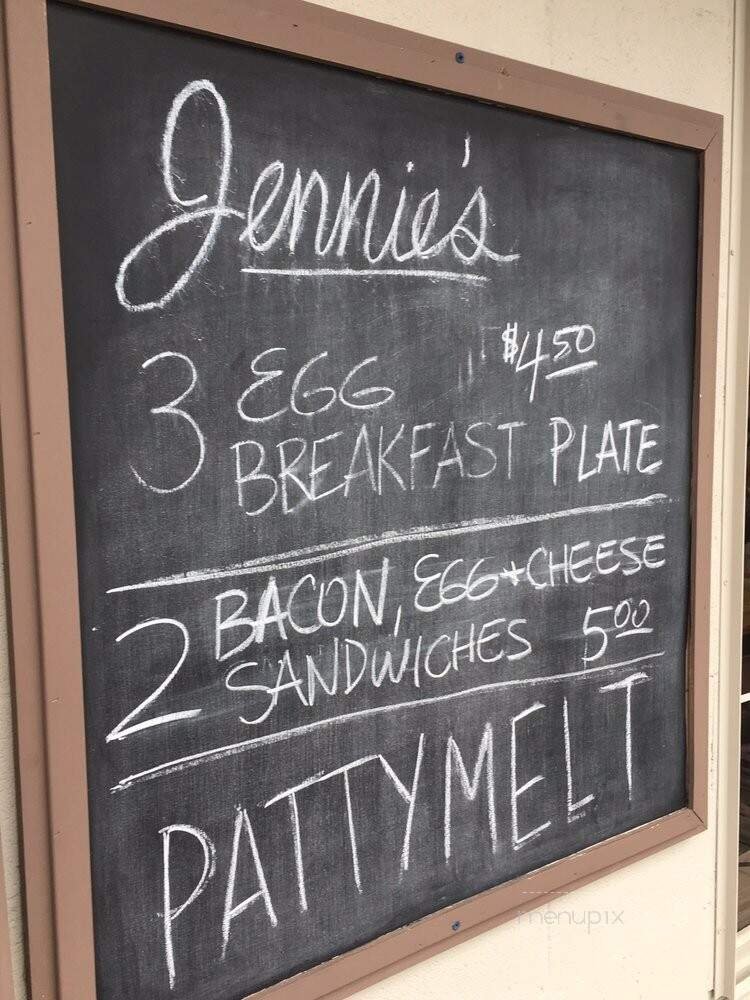 Jennie's
3 EGG $4.50
BREAKFAST PLATE
2 BACON, EGG + CHEESE
SANDWICHES 5.00
PATTYMELT
menupix